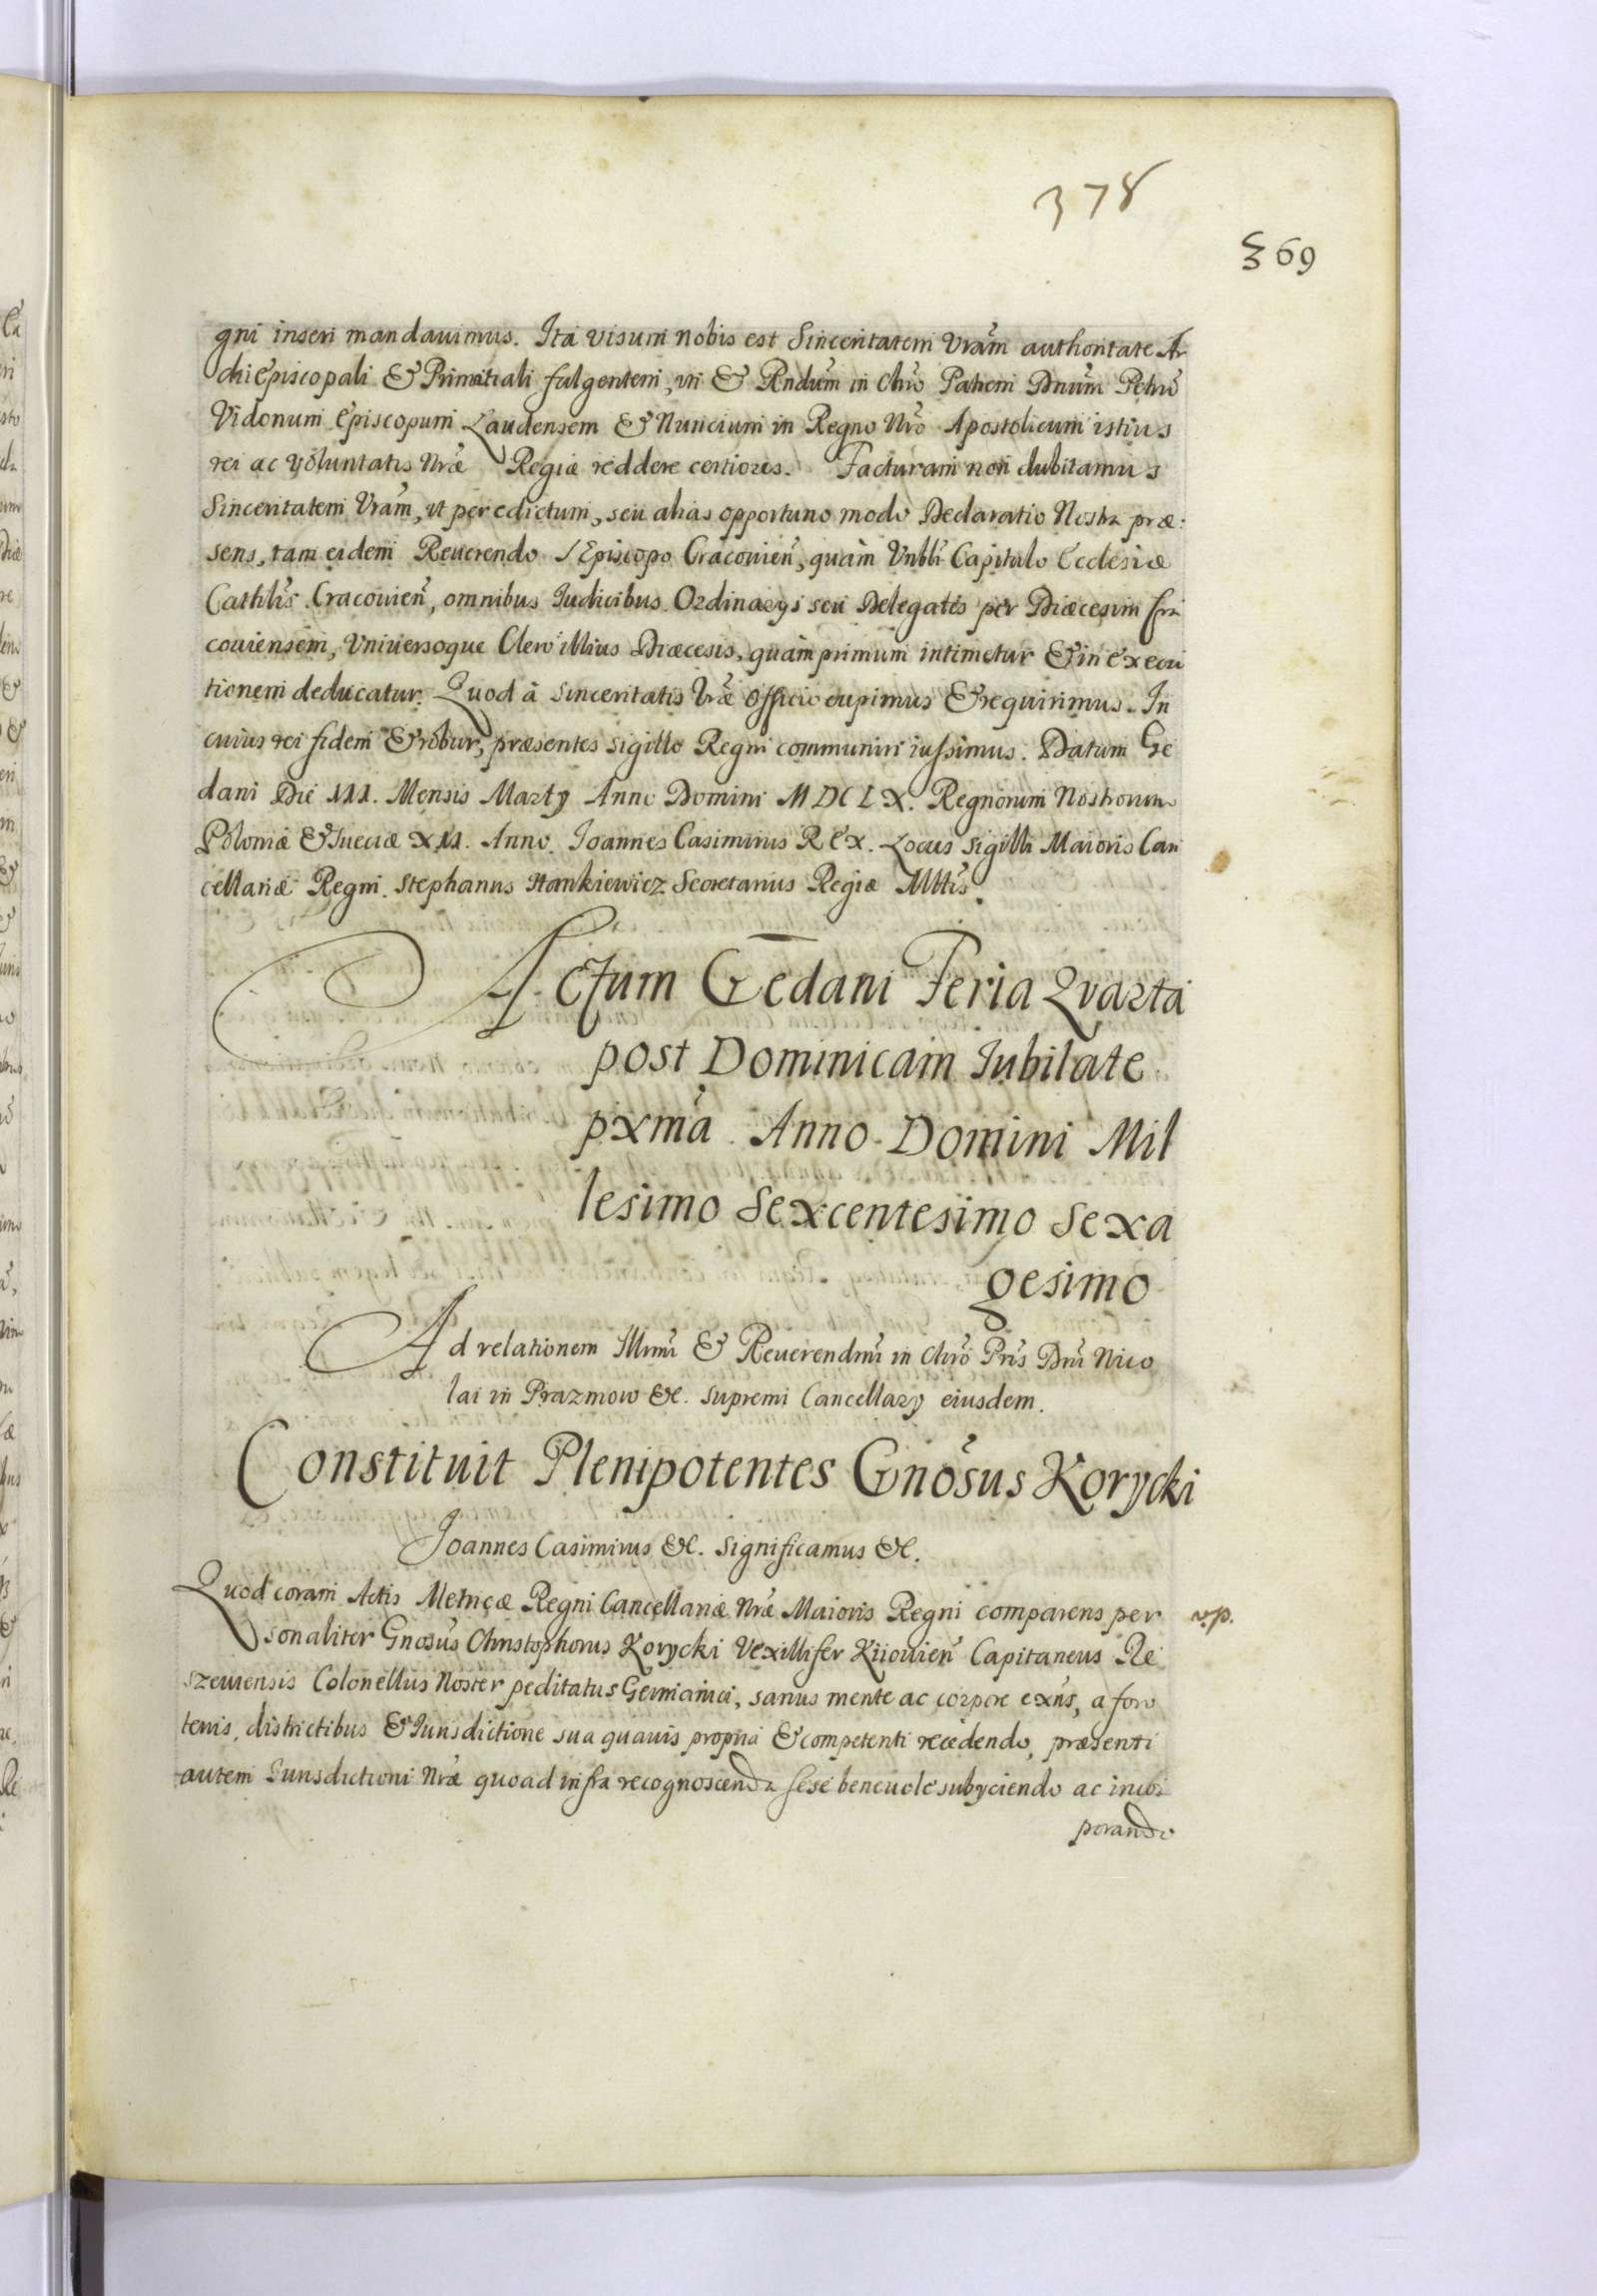 378
369
gni inseri mandauimus. Ita visum nobis est Sinceritatem Vrãm authoritate Ar
chiEpiscopali & Primatiali fulgentem, uti & Rndũm in Chrõ Patrem Dnũm Petrũ
Vidonum Episcopum Laudensem & Nuncium in Regno Nrõ Apostolicum istius
rei ac voluntatis Nræ Regiæ reddere certiores. Facturam non dubitamus
Sinceritatem Vrãm, ut per edictum, seu alias opportuno modo Declaratio Nostra præ:
sens, tam eidem Reuerendo Episcopo Cracouien, quàm Vnbli Capitulo Ecclesiæ
Cathlis Cracouien, omnibus Iudicibus Ordinarys seu Delegatis per Diæcesim Cra
couiensem, Vniuersoque Clero illius Diæcesis, quàm primum intimetur & in execu
tionem deducatur. Quod à sinceritatis Vræ Officio cupimus & requirimus. In
cuius rei fidem & robur, præsentes sigillo Regni communiri iussimus. Datum Ge
dani Die III. Mensis Marty Anno Domini MDCLX. Regnorum Nostrorum
Poloniæ & Sueciæ XII. Anno. Ioannes Casimirus REX. Locus Sigilli Maioris Can
cellariæ Regni. Stephanus Hankiewicz Secretarius Regiæ Mttis.
Actum Gedani Feria Quarta
post Dominicam Iubilate
pxmã Anno Domini Mil
lesimo Sexcentesimo Sexa
gesimo
Ad relationem Illmi & Reuerendmi in Chrõ Pris Dni Nico
lai in Prazmow &c. supremi Cancellary eiusdem.
Constituit Plenipotentes Gnosus Korycki
Ioannes Casimirus &c. Significamus &c.
Quod coram Actis Metricæ Regni Cancellariæ Nræ Maioris Regni comparens per
v.p.
sonaliter Gnosus Christophorus Korycki Vexillifer Kiiouien Capitaneus Re
szeuiensis Colonellus Noster peditatus Germanici, sanus mente ac corpore exns, a foro
teris, districtibus & Iurisdictione sua quauis propria & competenti recedendo, præsenti
autem Iurisdictioni Nræ quoad infra recognoscenda sese beneuole subyciendo ac incor
porando